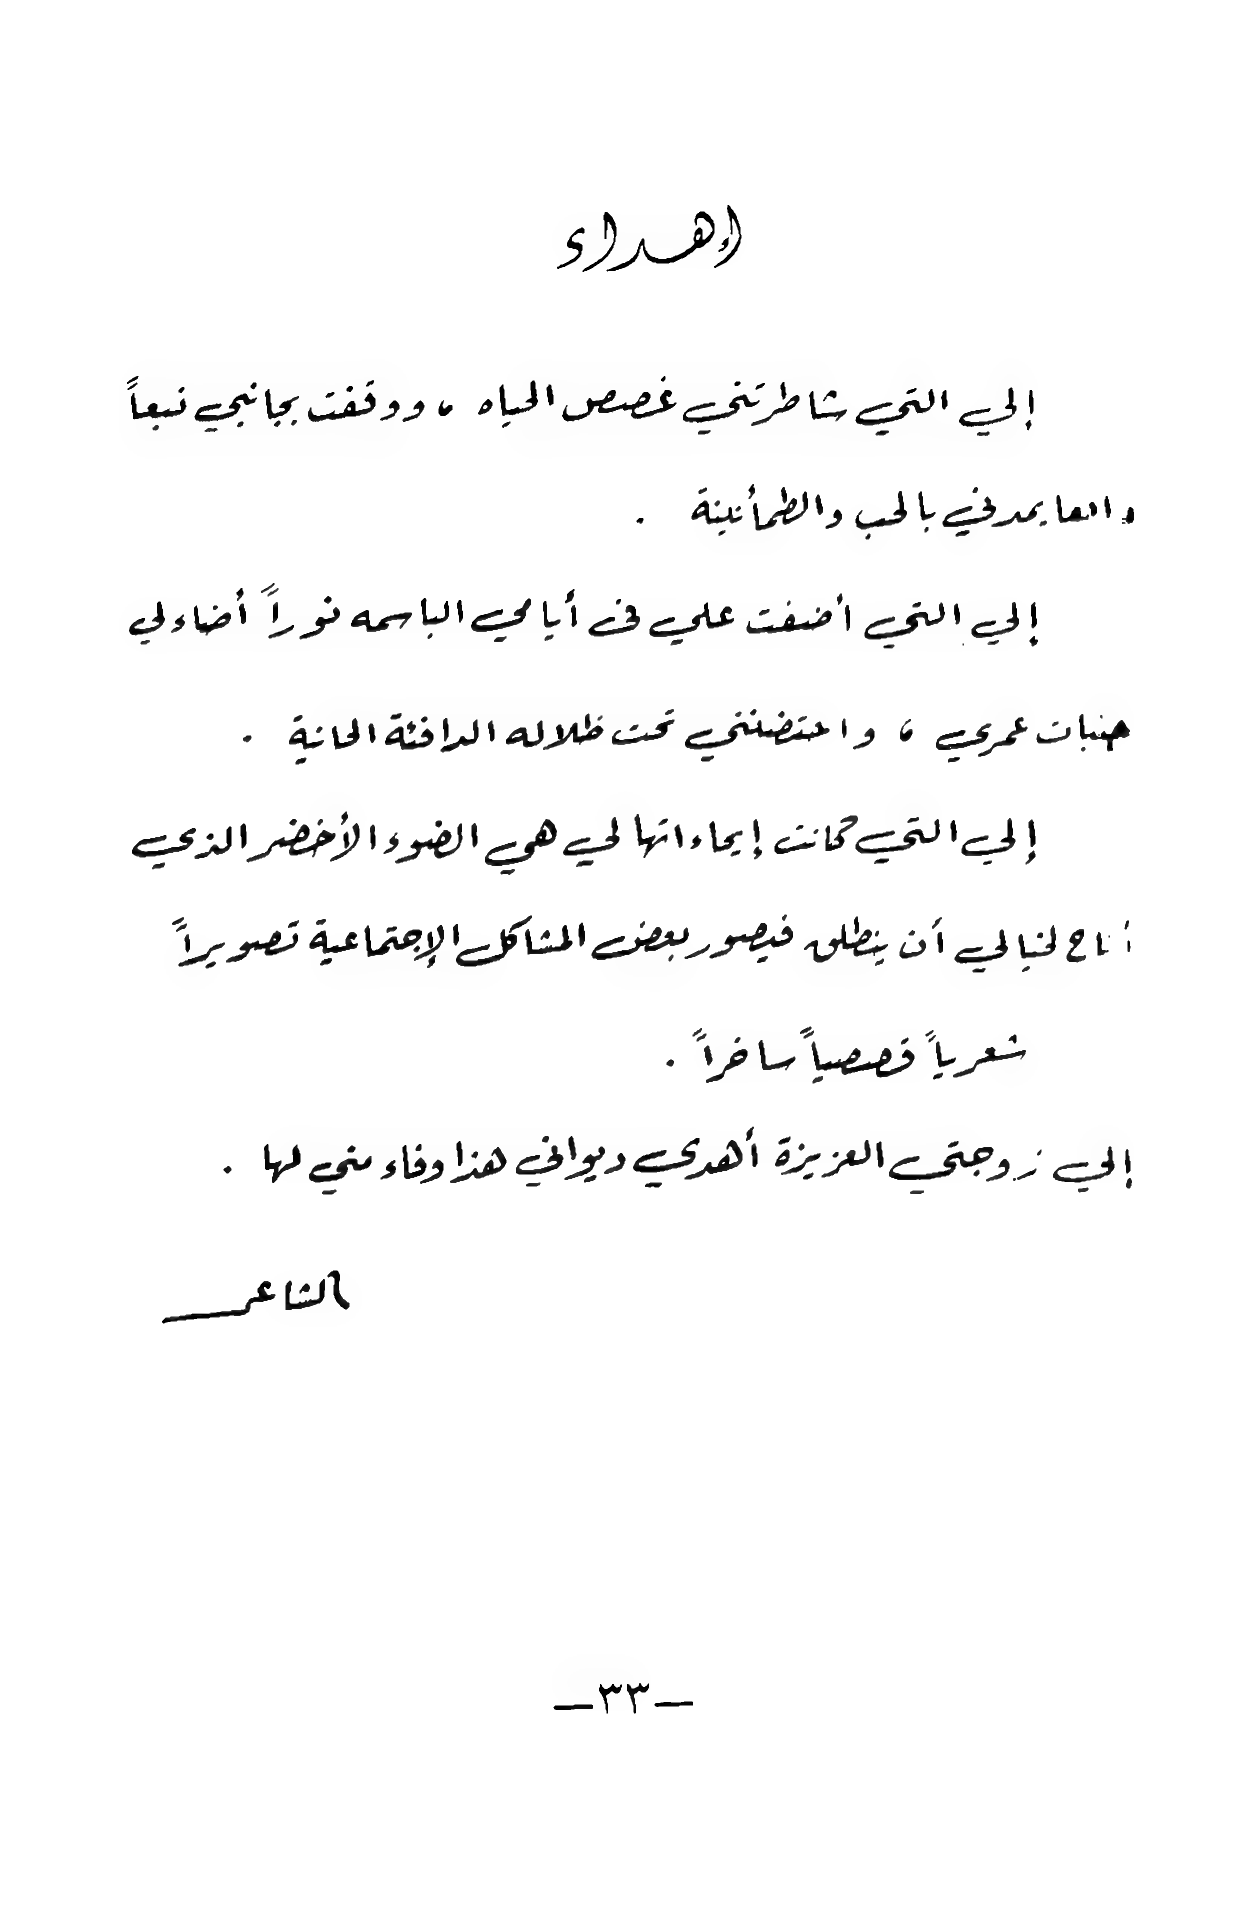 إهداء
إلي التي شاطرتني غصص الحياه ، ووقفت بجانبي نبعاً
دافعا يمدني بالحب والطمأنينة .
إلي التي أضفت علي في أيامي الباسمه نوراً أضاء لي
جنبات عمري ، واحتضنتني تحت ظلاله الدافئة الحانية .
إلي التي كانت إيحاءاتها لي هي الضوء الأخضر الذي
أتاح لخيالي أن ينطلق فيصور بعض المشاكل الإجتماعية تصويراً
شعرياً قصصياً ساخراً .
إلي زوجتي العزيزة أهدي ديواني هذا وفاء مني لها .
الشاعر
—٣٣—